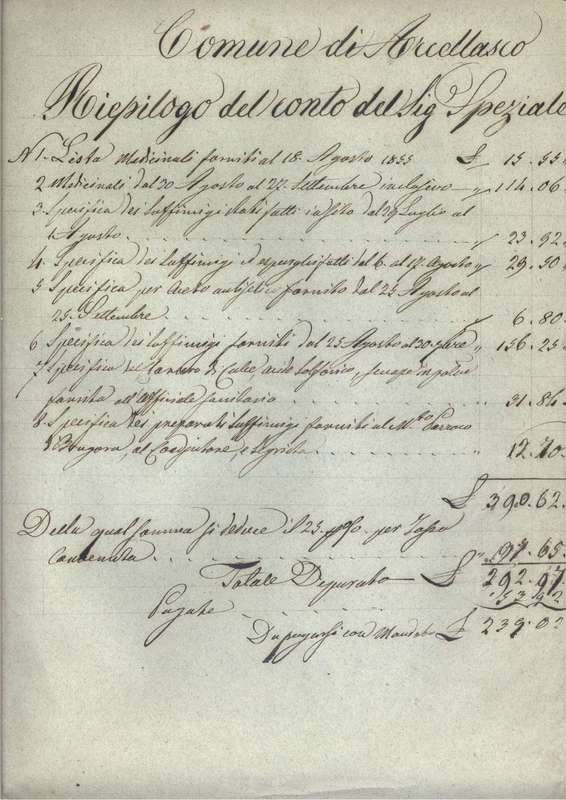 Comune di Arcellasco
Riepilogo del conto del Sig Speziale
N 1. Lista Medicinali forniti al 18 Agosto 1855 £ 15.55
2 Medicinali dal 20 Agosto al 27 Settembre inclusivo " 114.06
3 Specifica dei Suffimigi fatti dal 29 Luglio al
Agosto " 23.92
4 Specifica dei Suffimigi fatti dal 6 al 17 Agosto " 29.50
5 Specifica per Aceto fornito dal 25 Agosto al
25 Settembre " 6.80
6 Specifica dei Suffimigi forniti dal 25 Agosto al 30 " 156.25
7 Specifica di Calce acido Solforico, Senape in polvere
fornita all'Officiale Sanitario 31.84
8 Specifica dei preparati Suffimigi forniti al Parroco
al Coadjutore, e 12.70
£ 390.62
Della qual somma si deduce il 25 p% per Tassa
Convenuta " 97.65
Totale Depurato £ 292.97
Pagate 53.92
Da pagarsi con Mandato £ 239.0